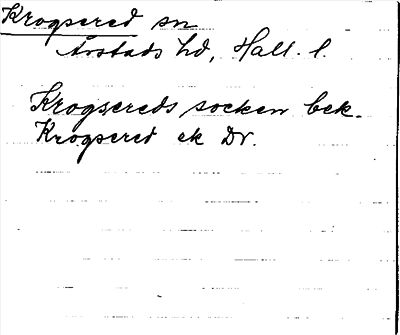 Krogsered sn
Årstads hd, Hall. l.
Krogsereds socken bek.
Krogsered ek Dr.